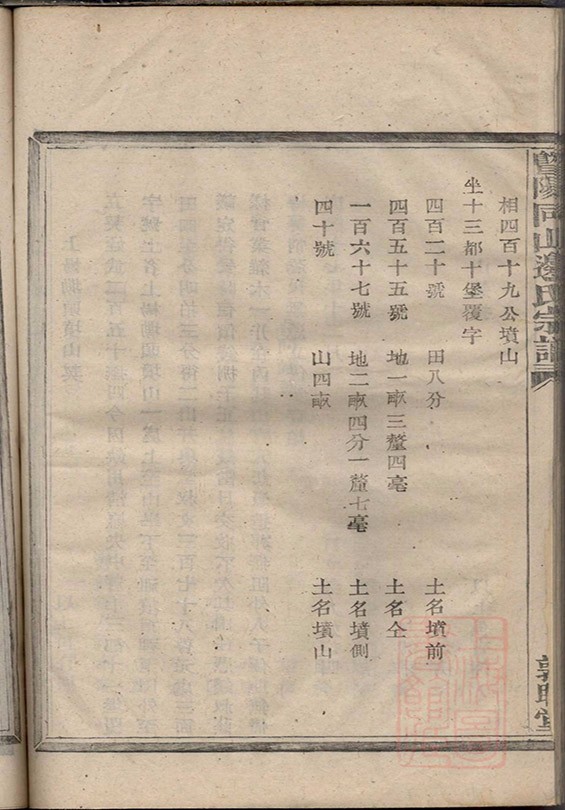 暨陽同山邊氏宗譜
敦睦堂
相四百十九公墳山
坐十三都十堡覆字
四百二十號 田八分 土名墳前
四百五十五號 地一畝三釐四毫 土名仝
一百六十七號 地二畝四分一釐七毫 土名墳側
四十號 山四畝 土名墳山